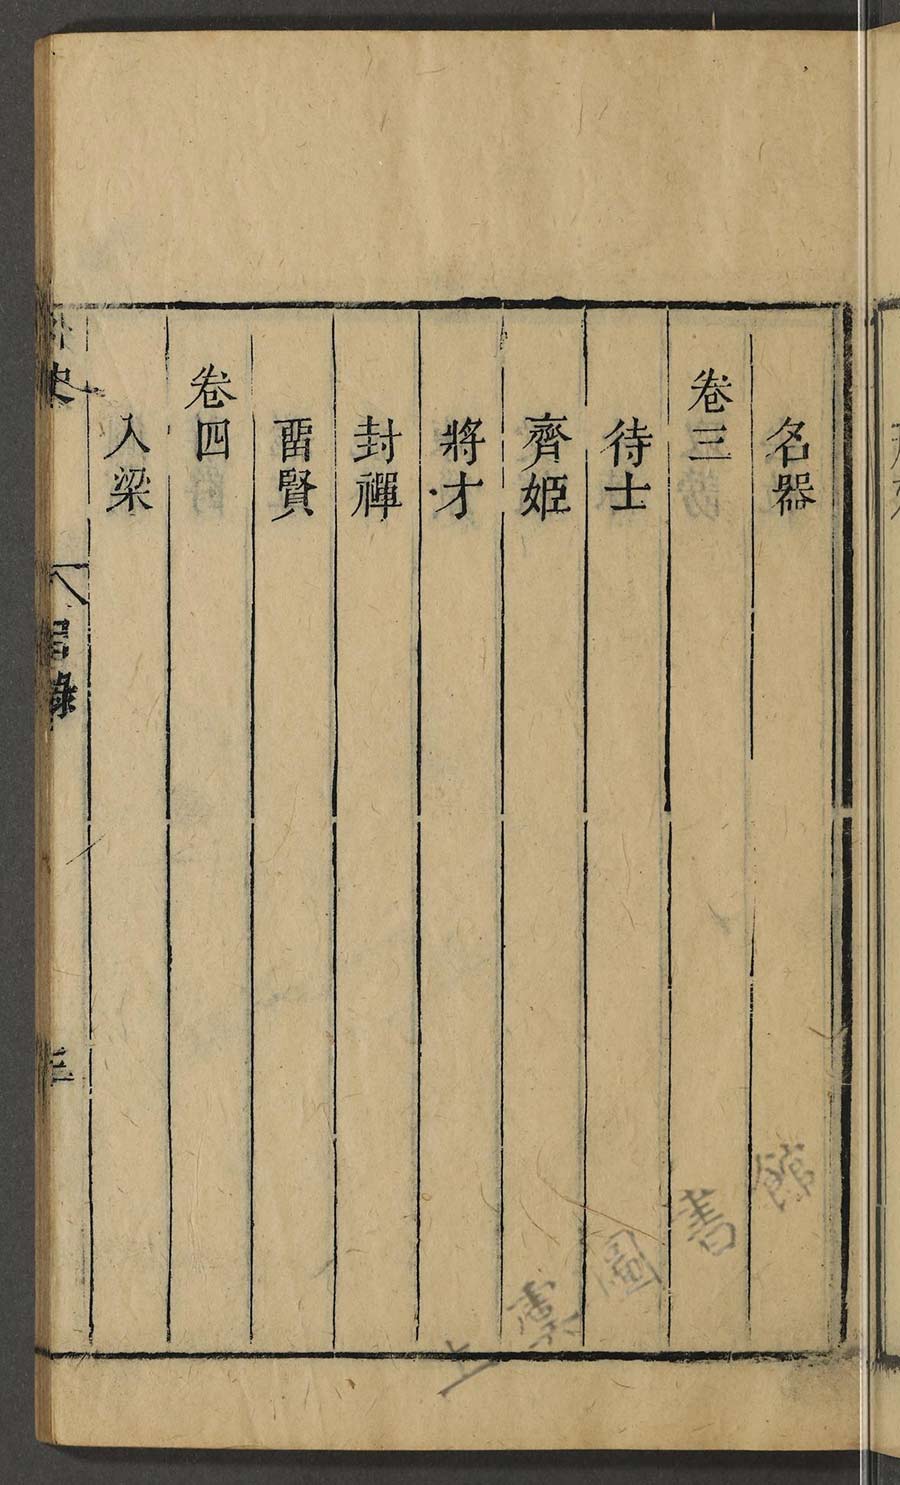 名器
卷三
待士
齊姬
將才
封禪
畱賢
卷四
入梁
史
目錄
三
上海圖書館